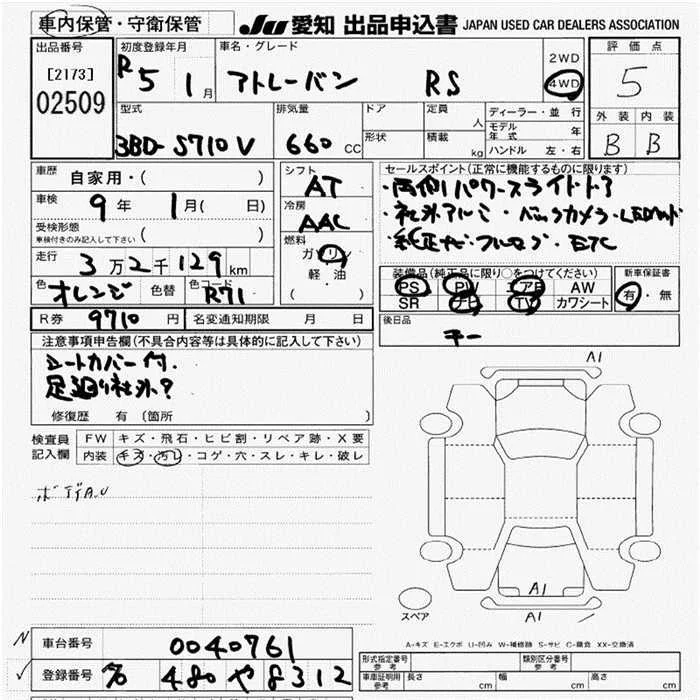 車内保管・守衛保管
JU 愛知 出品申込書 JAPAN USED CAR DEALERS ASSOCIATION
出品番号
[2173]
02509
初度登録年月
R5 1月
車名・グレード
アトレーバン RS
2WD
4WD
評価点
5
外装 内装
B B
型式
3BD-S710V
排気量
660 CC
ドア
形状
定員 人
積載 kg
ディーラー・並行
モデル年式 年
ハンドル 左・右
車歴 自家用・( )
車検 9年 1月( 日)
受検形態
車検付きのみ記入して下さい ( )
走行 3万2千129km
色 オレンジ 色替 色コード R71
R券 9710円 名変通知期限 月 日
シフト
AT
冷房
AAC
燃料
ガソリン
軽・油
( )
セールスポイント(正常に機能するものに限ります)
・両側パワースライドドア
・社外アルミ・バックカメラ・LEDヘッド
・純正ナビ・フルセグ・ETC
装備品(純正品に限り○をつけてください)
PS PW エアB AW
SR ナビ TV カワシート
新車保証書
有・無
後日品
注意事項申告欄(不具合内容等は具体的に記入して下さい)
シートカバー付.
足廻り社外?
修復歴 有 (箇所 )
検査員記入欄
FW キズ・飛石・ヒビ割・リペア跡・X要
内装 キズ・汚レ・コゲ・穴・スレ・キレ・破レ
ボデイA.U
A1
A1
A1
スペア
A-キズ E-エクボ U-凹み W-補修跡 S-サビ C-腐食 XX-交換済
車台番号 0040761
登録番号 480 や 8312
形式指定番号 参考
類別区分番号 参考
車庫証明用 参考 長さ cm 幅 cm 高さ cm